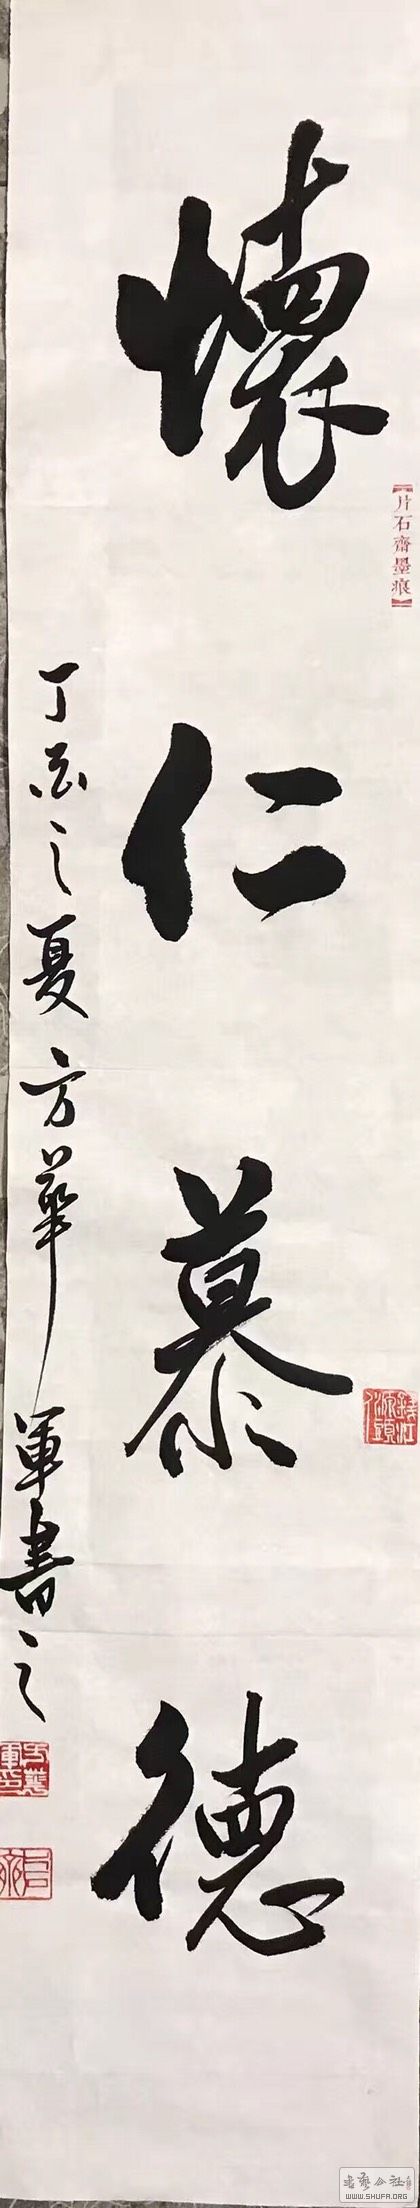 懷仁慕德
片石齋墨痕
丁酉之夏方華軍書之
方華軍印
書藝公社
WWW.SHUFA.ORG